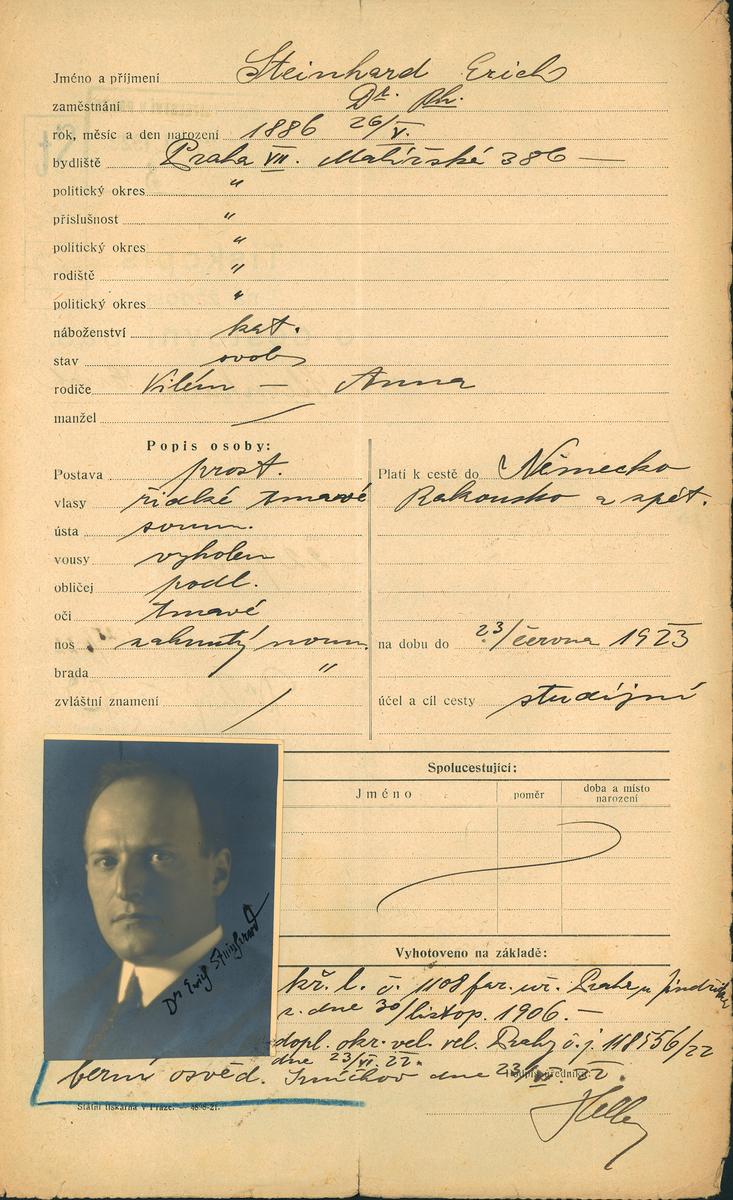 Jméno a příjmení Steinhard Erich
zaměstnání Dr. Ph.
rok, měsíc a den narození 1886 26/V.
bydliště Praha VII. Malířská 386 —
politický okres "
příslušnost "
politický okres "
rodiště "
politický okres "
náboženství kat.
stav svob
rodiče Vilém — Anna
manžel
Popis osoby:
Postava prost.
vlasy řídké tmavé
ústa soum.
vousy vyholen
obličej podl.
oči tmavé
nos zahnutý noum.
brada "
zvláštní znamení
Platí k cestě do Německo
Rakousko a zpět.
na dobu do 23/června 1923
účel a cíl cesty studijní
Spolucestující:
Jméno poměr doba a místo narození
Dr Erich Steinhard
Vyhotoveno na základě:
kř. l. č. 1108 far. úř. Praha u Jindřicha
z dne 30/listop. 1906. —
dopl. okr. vel. vel. Prahy č. j. 118556/22
dne 23/VI. 22.
berní osvěd. Smíchov dne 23/VI. 22.
Podpis úředníka:
Státní tiskárna v Praze. — 4696-21.